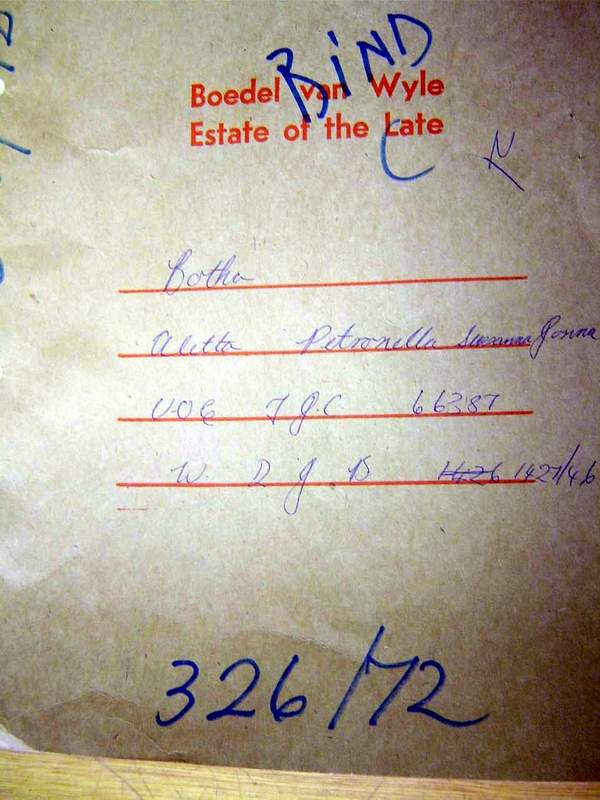 BIND
Boedel van Wyle
Estate of the Late
Botha
Aletta Petronella Susanna
V.O.E J G.C. 66387
W. D J B 1427/46
326/72